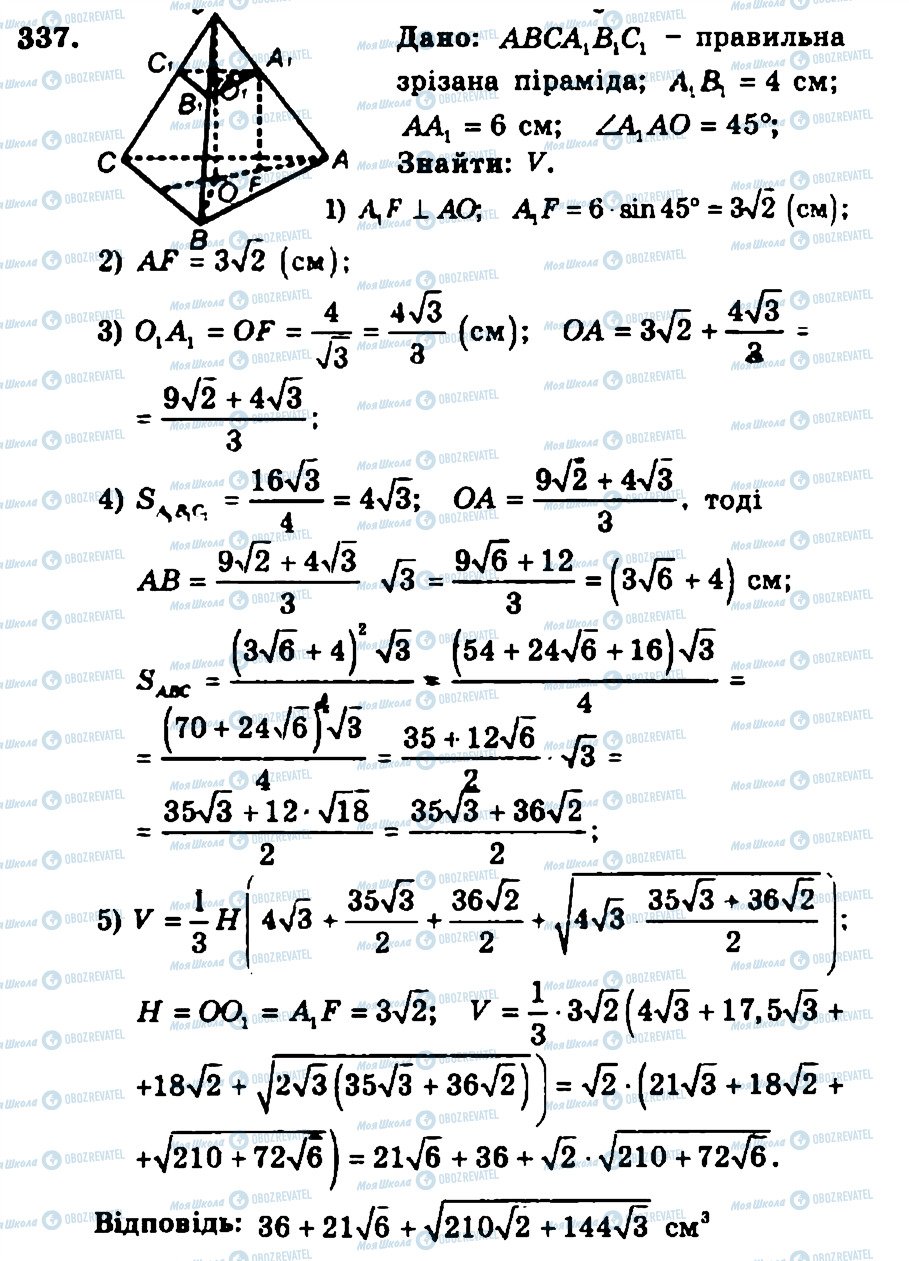 337.
C₁ A₁
B₁ O₁
C O F A
B
Дано: ABCA₁B₁C₁ – правильна
зрізана піраміда; A₁B₁ = 4 см;
AA₁ = 6 см; ∠A₁AO = 45°;
Знайти: V.
1) A₁F ⊥ AO; A₁F = 6 · sin 45° = 3√2 (см);
2) AF = 3√2 (см);
3) O₁A₁ = OF = 4/√3 = 4√3/3 (см); OA = 3√2 + 4√3/3 =
= (9√2 + 4√3)/3;
4) S_A₁B₁C₁ = 16√3/4 = 4√3; OA = (9√2 + 4√3)/3, тоді
AB = (9√2 + 4√3)/3 √3 = (9√6 + 12)/3 = (3√6 + 4) см;
S_ABC = (3√6 + 4)² √3/4 = (54 + 24√6 + 16)√3/4 =
= (70 + 24√6)√3/4 = (35 + 12√6)/2 · √3 =
= (35√3 + 12 · √18)/2 = (35√3 + 36√2)/2;
5) V = 1/3 H(4√3 + 35√3/2 + 36√2/2 + √(4√3 · (35√3 + 36√2)/2));
H = OO₁ = A₁F = 3√2; V = 1/3 · 3√2(4√3 + 17,5√3 +
+18√2 + √(2√3(35√3 + 36√2))) = √2 · (21√3 + 18√2 +
+√(210 + 72√6)) = 21√6 + 36 + √2 · √(210 + 72√6).
Відповідь: 36 + 21√6 + √(210√2 + 144√3) см³
Моя Школа OBOZREVATEL